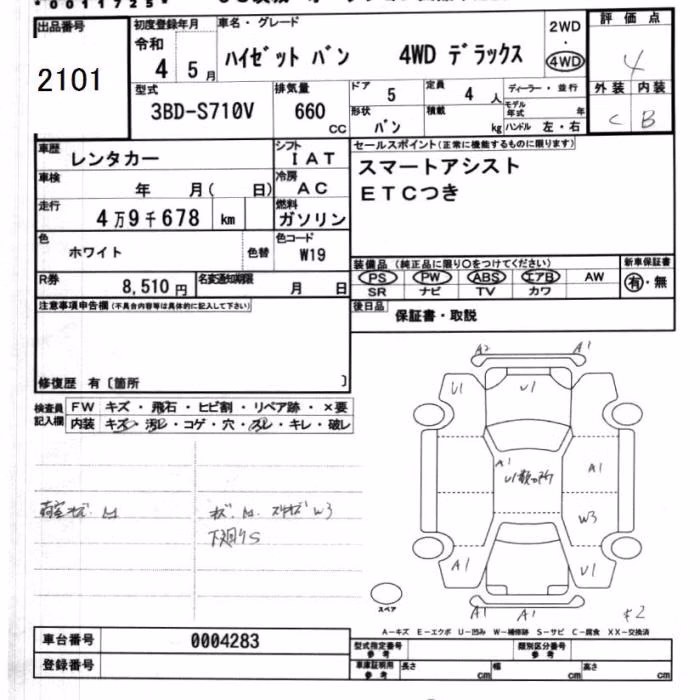 *0011725*
出品番号
2101
初度登録年月
令和
4 5月
車名・グレード
ハイゼット バン 4WD デラックス
2WD
・
4WD
評価点
4
外装 内装
C B
型式
3BD-S710V
排気量
660
CC
ドア 5
定員 4 人
ディーラー・並行
形状 バン
積載 kg
モデル年式 年
ハンドル 左・右
車歴
レンタカー
シフト
IAT
車検
年 月( 日)
冷房
AC
走行
4万9千678 km
燃料
ガソリン
色
ホワイト
色替
色コード
W19
R券
8,510円
名変通知期限
月 日
セールスポイント(正常に機能するものに限ります)
スマートアシスト
ETCつき
装備品(純正品に限り○をつけてください)
PS PW ABS エアB AW
SR ナビ TV カワ
新車保証書
有・無
注意事項申告欄(不具合内容等は具体的に記入して下さい)
後日品
保証書・取説
修復歴 有〔箇所 〕
検査員記入欄
FW キズ・飛石・ヒビ割・リペア跡・×要
内装 キズ・汚レ・コゲ・穴・スレ・キレ・破レ
W3
下廻りS
A2 A1
U1 U1
A1
A1
W3
A1 U1
A1 A1
スペア
A-キズ E-エクボ U-凹み W-補修跡 S-サビ C-腐食 XX-交換済
車台番号
0004283
登録番号
型式指定番号
参考
類別区分番号
参考
車庫証明用
参考
長さ cm
幅 cm
高さ cm